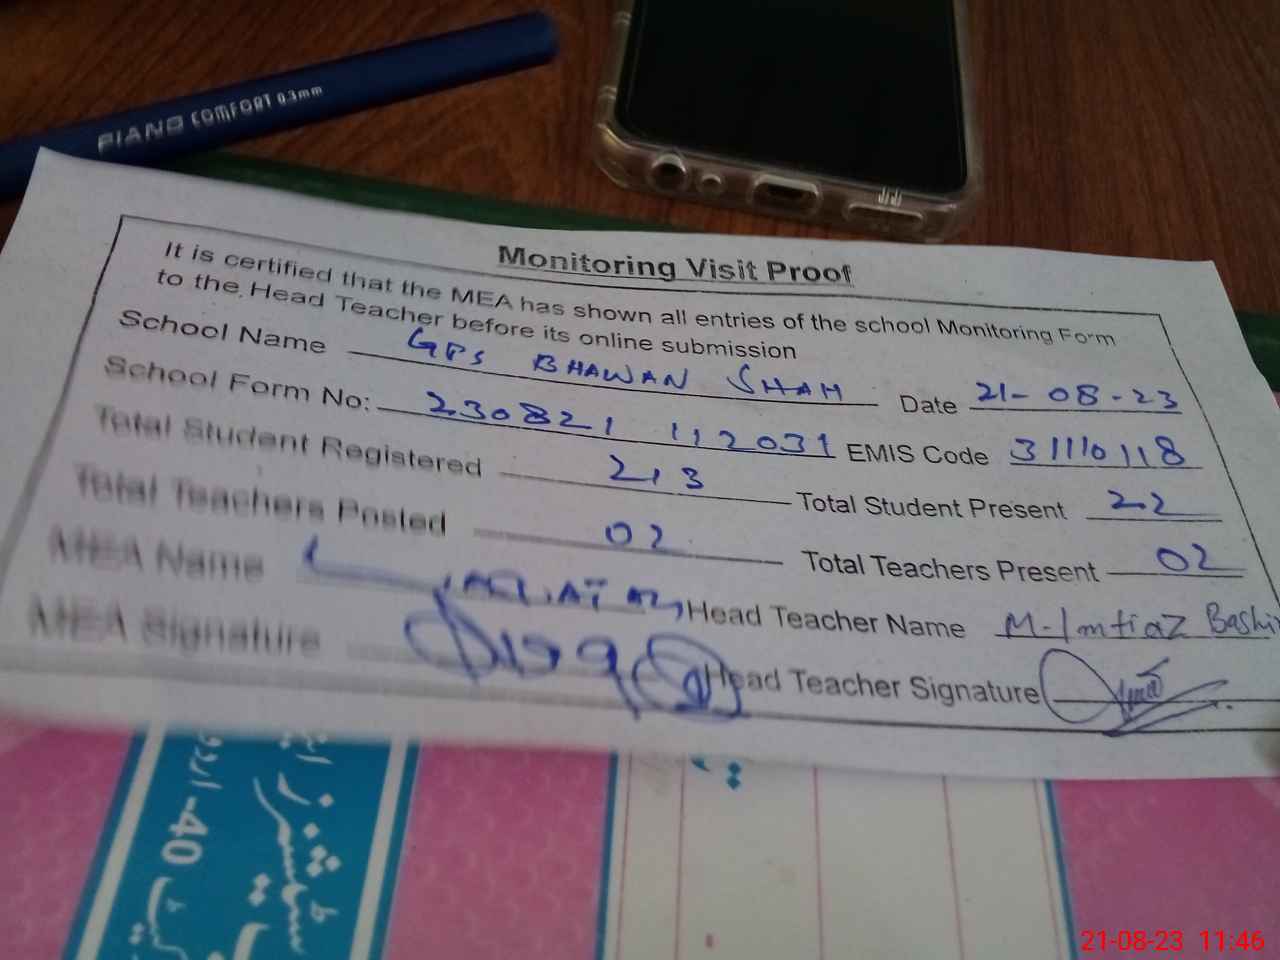 PIANO COMFORT 0.3mm
Monitoring Visit Proof
It is certified that the MEA has shown all entries of the school Monitoring Form
to the Head Teacher before its online submission
School Name GPS BHAWAN SHAH Date 21-08-23
School Form No: 230821 112031 EMIS Code 31110118
Total Student Registered 213 Total Student Present 22
Total Teachers Posted 02 Total Teachers Present 02
MEA Name Head Teacher Name M-Imtiaz Bashir
MEA Signature Head Teacher Signature
40
21-08-23 11:46